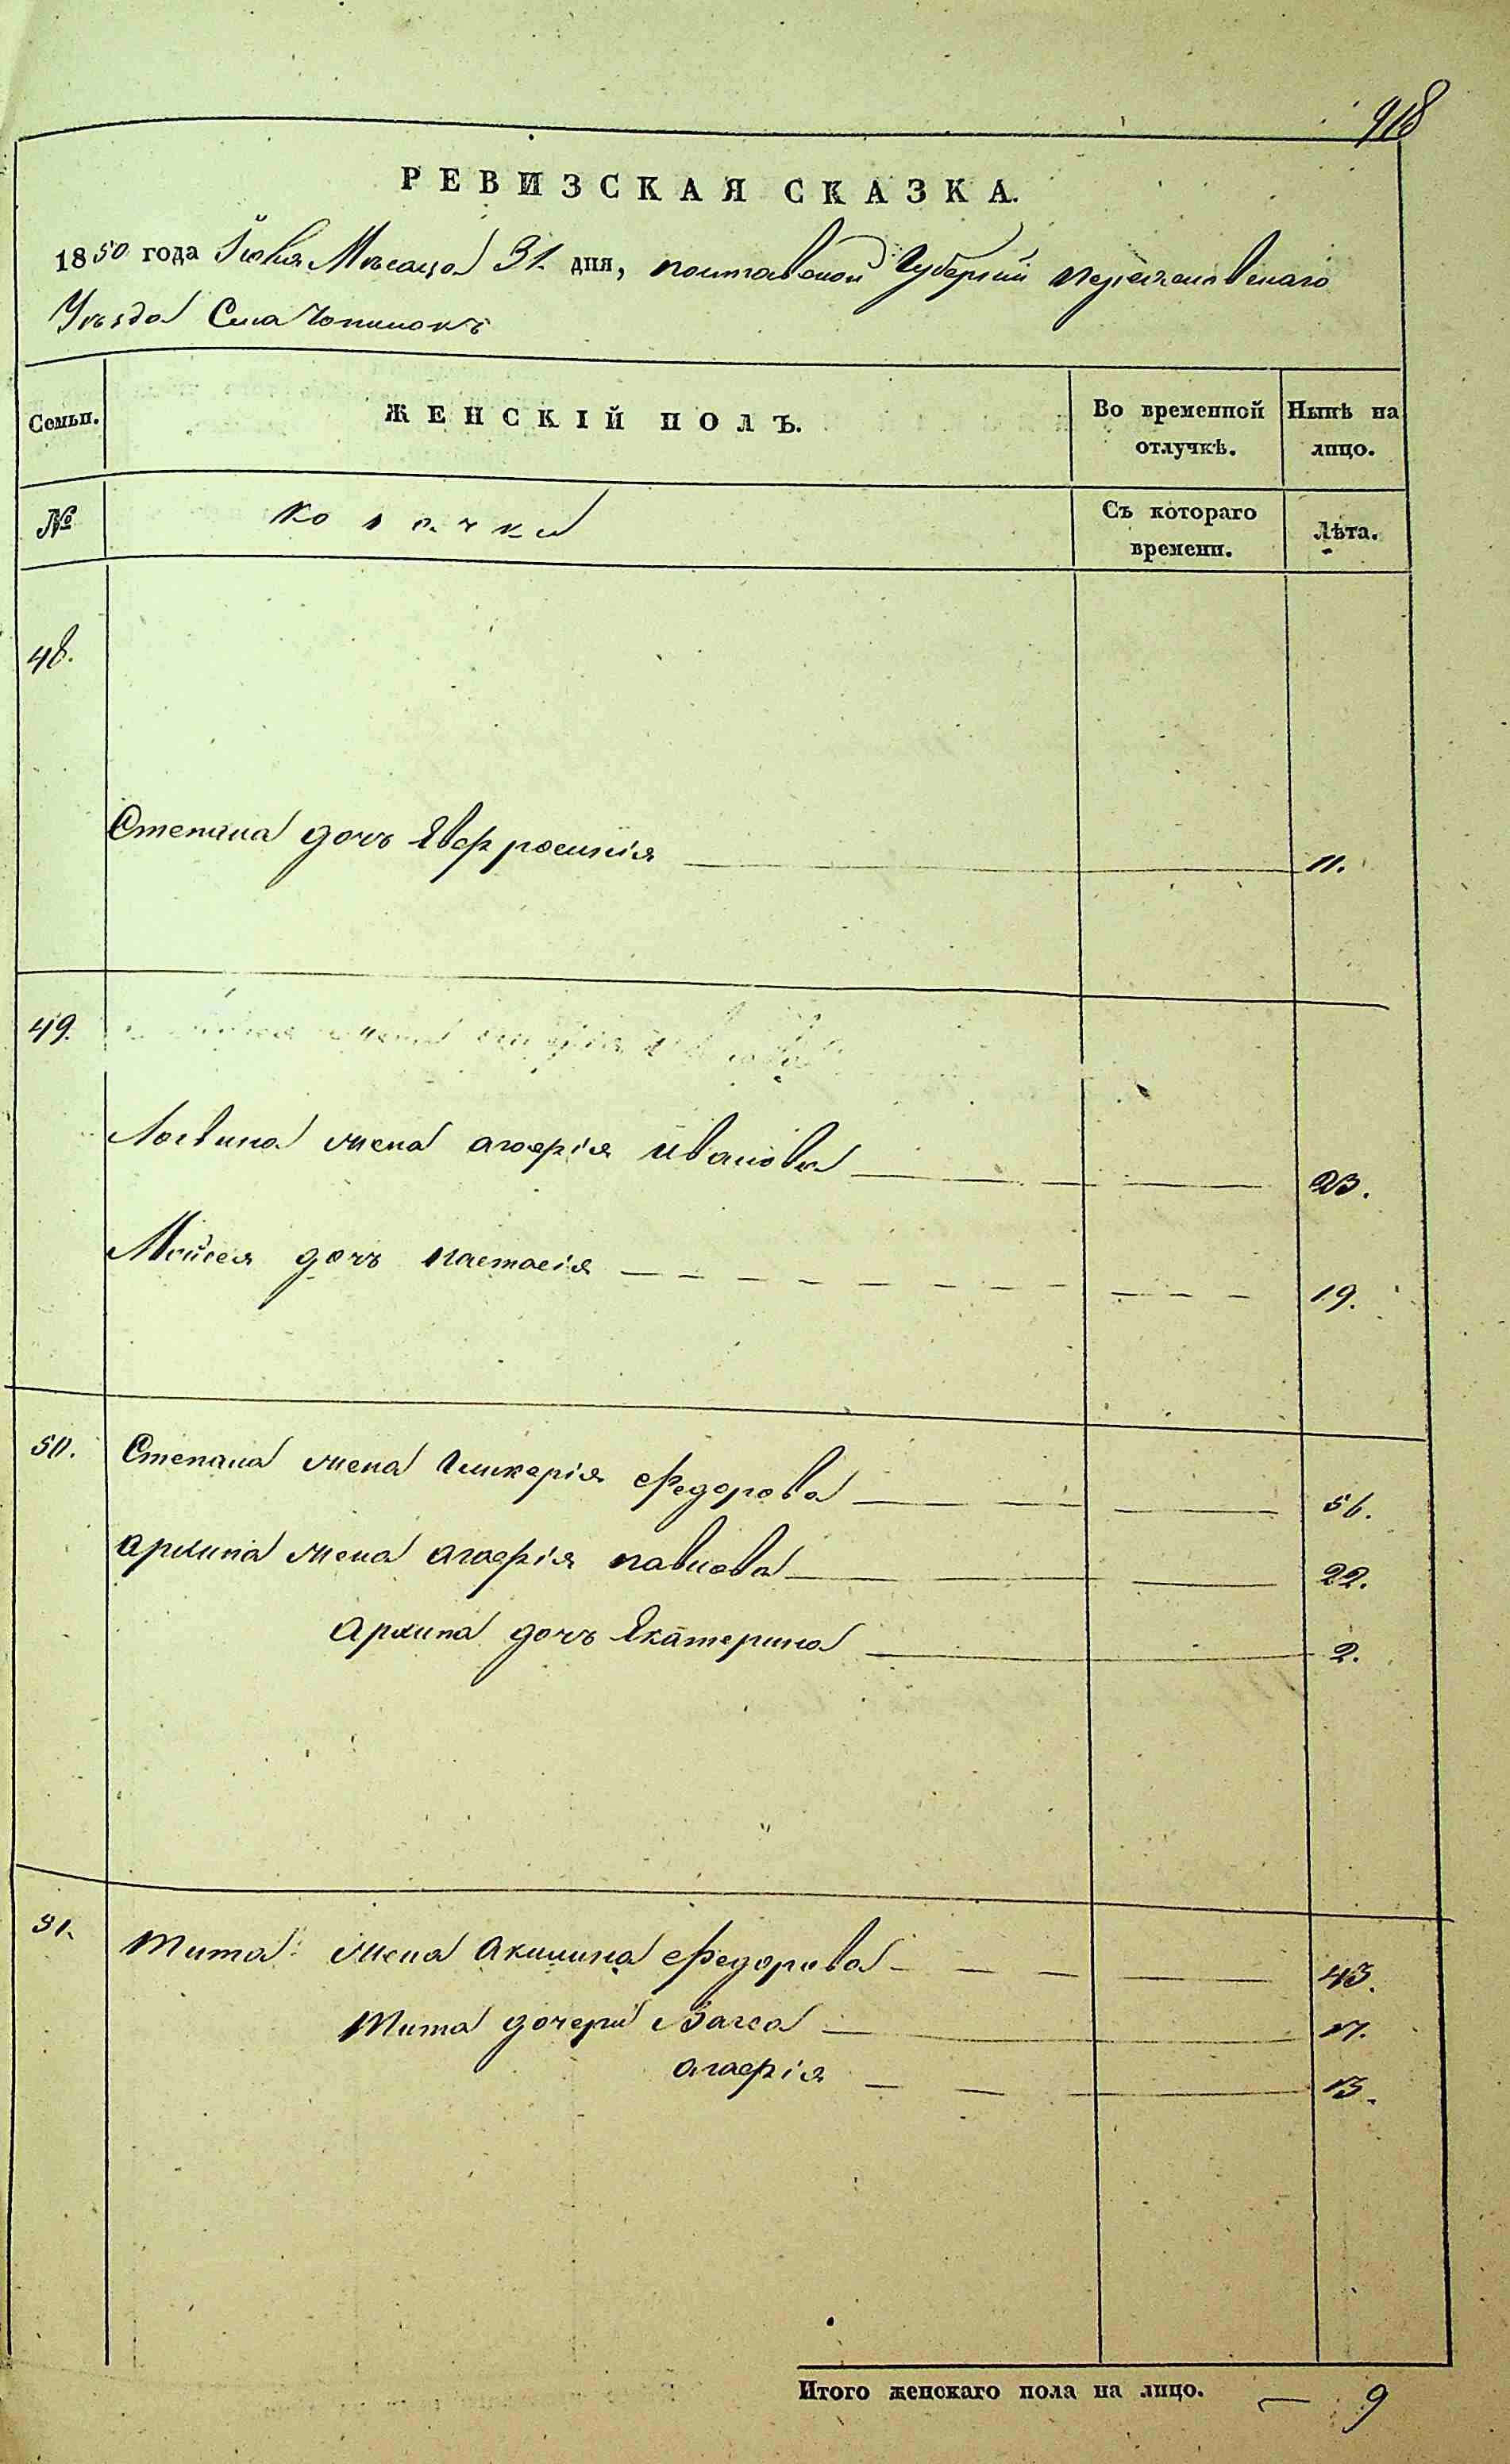 918
РЕВИЗСКАЯ СКАЗКА.
1850 года Июля Мѣсяца 31. дня, полтавской Губерніи Переяславскаго
Уѣзда Села Чопилокъ
Семьи.
ЖЕНСКІЙ ПОЛЪ.
Во временной отлучкѣ.
Нынѣ на лицо.
№
Козачки
Съ котораго времени.
Лѣта.
48.
Степана дочь Евфросинія 11.
49.
Логвина жена агафія Иванова 23.
Мойсея дочь Настасія 19.
50. Степана жена Гликерія Федорова 56.
архипа жена агафія павлова 22.
архипа дочь Екатерина 2.
51. Тита жена Акилина Федорова 43.
Тита дочери Васса 17.
агафія 13.
Итого женскаго пола на лицо. 9